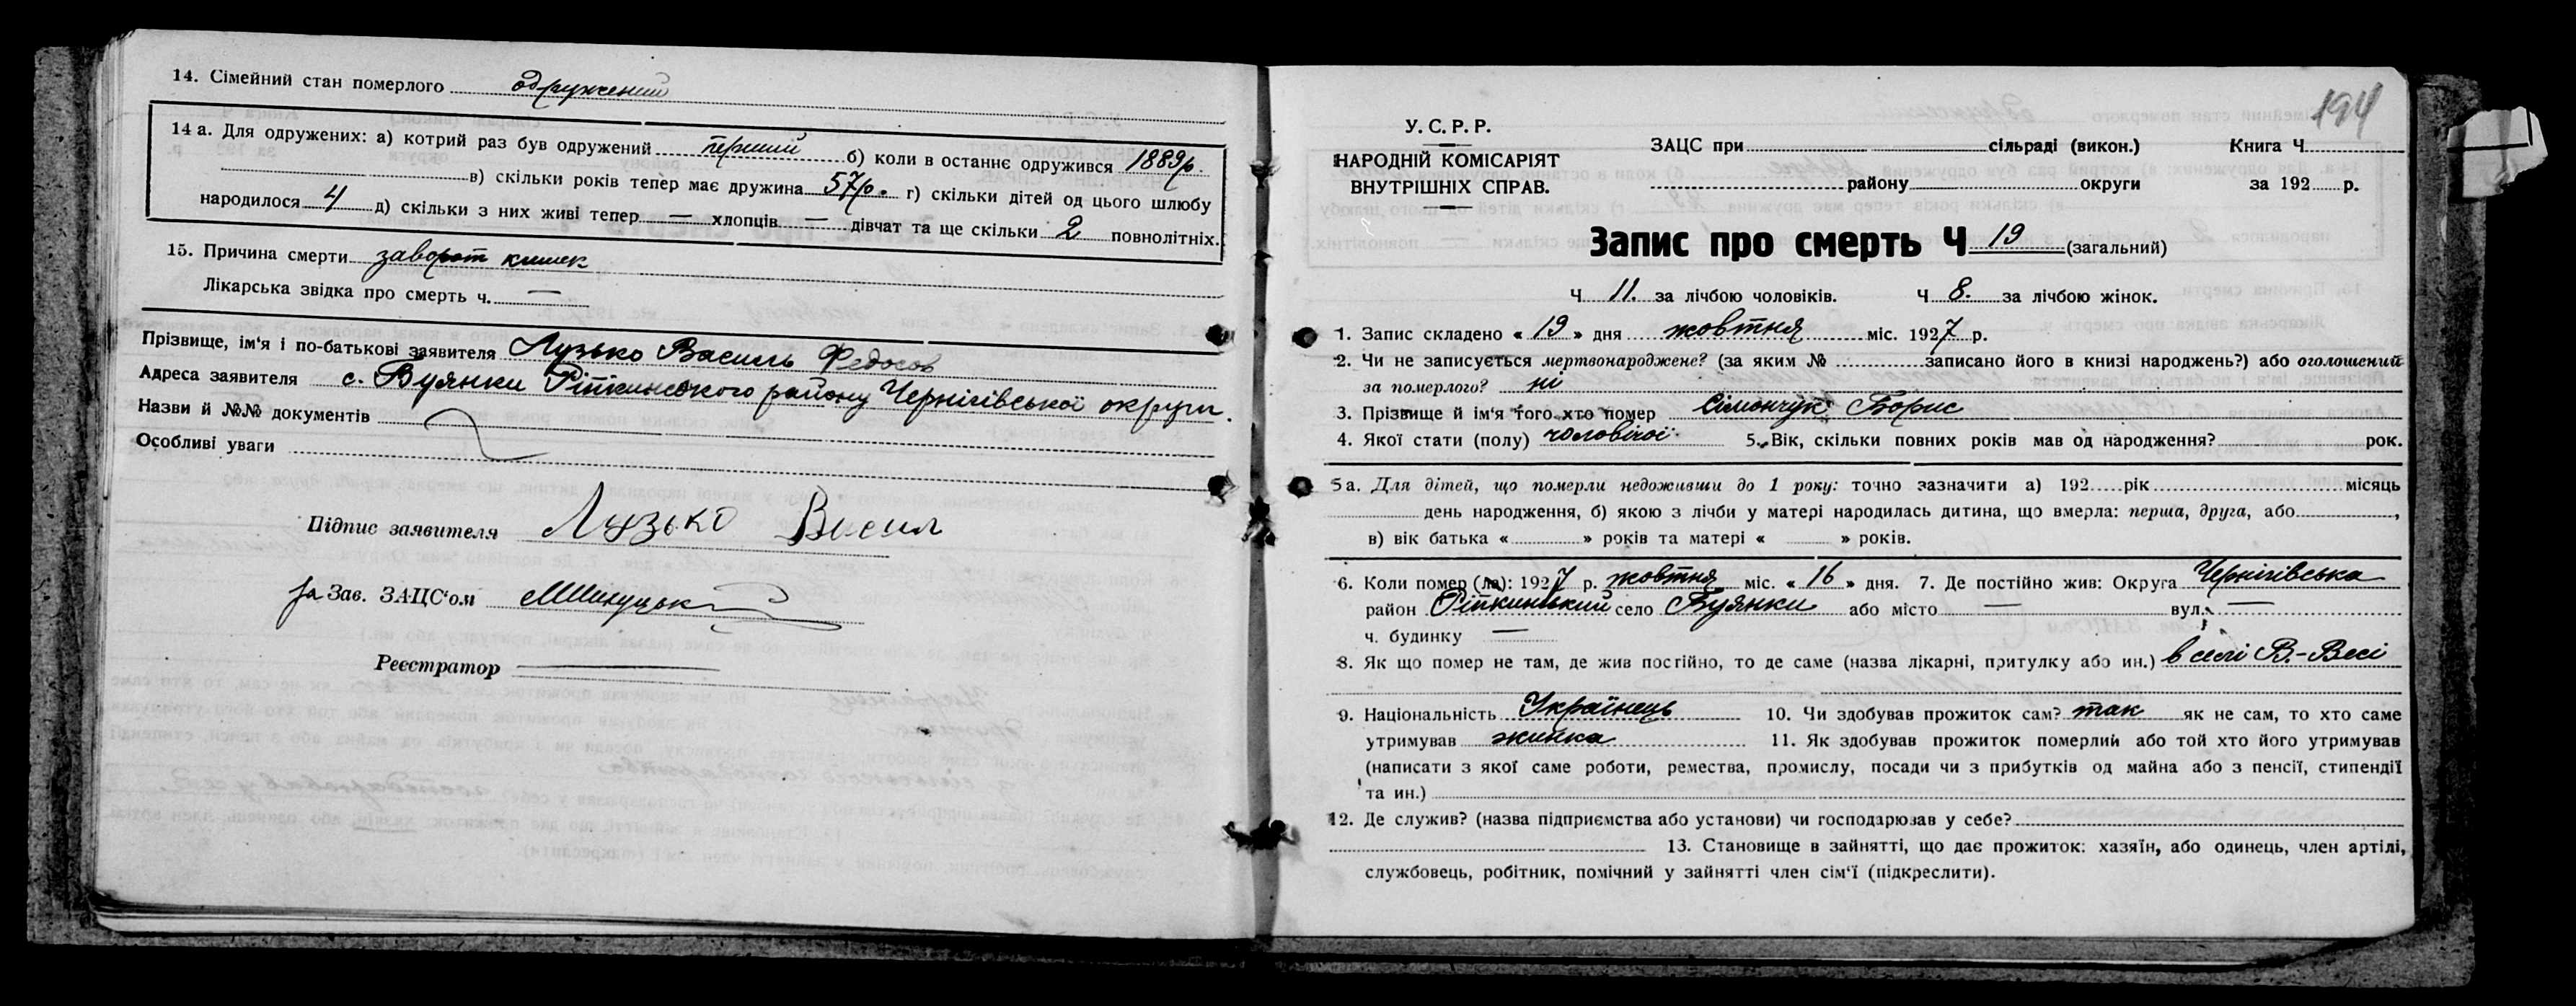 14. Сімейний стан померлого одружений
14 а. Для одружених: а) котрий раз був одружений перший б) коли в останнє одружився 1889р.
в) скільки років тепер має дружина 57р. г) скільки дітей од цього шлюбу
народилося 4 д) скільки з них живі тепер — хлопців — дівчат та ще скільки 2 повнолітніх.
15. Причина смерти заворот кишек
Лікарська звідка про смерть ч. —
Прізвище, ім'я і по-батькові заявителя Лузько Василь Федосов
Адреса заявителя с. Буянки Ріпкинського району Чернігівської округи.
Назви й №№ документів
Особливі уваги
Підпис заявителя Лузько Васил
за Зав. ЗАЦС'ом
Реєстратор
194
У. С. Р. Р.
НАРОДНІЙ КОМІСАРІЯТ
ВНУТРІШНІХ СПРАВ.
ЗАЦС при сільраді (викон.) Книга Ч.
району округи за 192 р.
Запис про смерть Ч 19 (загальний)
Ч 11. за лічбою чоловіків. Ч 8. за лічбою жінок.
1. Запис складено « 19 » дня жовтня міс. 1927 р.
2. Чи не записується мертвонароджене? (за яким № записано його в книзі народжень?) або оголошений
за померлого? ні
3. Прізвище й ім'я того хто помер Сімончук Борис
4. Якої стати (полу) чоловічої 5. Вік, скільки повних років мав од народження? рок.
5 а. Для дітей, що померли недоживши до 1 року: точно зазначити а) 192 рік місяць
день народження, б) якою з лічби у матері народилась дитина, що вмерла: перша, друга, або ,
в) вік батька « » років та матері « » років.
6. Коли помер (ла): 1927 р. жовтня міс. « 16 » дня. 7. Де постійно жив: Округа Чернігівська
район Ріпкинський село Буянки або місто — вул. —
ч. будинку —
8. Як що помер не там, де жив постійно, то де саме (назва лікарні, притулку або ин.) в селі В.-Весі
9. Національність Українець 10. Чи здобував прожиток сам? так як не сам, то хто саме
утримував жинка 11. Як здобував прожиток померлий або той хто його утримував
(написати з якої саме роботи, ремества, промислу, посади чи з прибутків од майна або з пенсії, стипендії
та ин.)
12. Де служив? (назва підприємства або установи) чи господарював у себе?
13. Становище в зайнятті, що дає прожиток: хазяїн, або одинець, член артілі,
службовець, робітник, помічний у зайнятті член сім'ї (підкреслити).